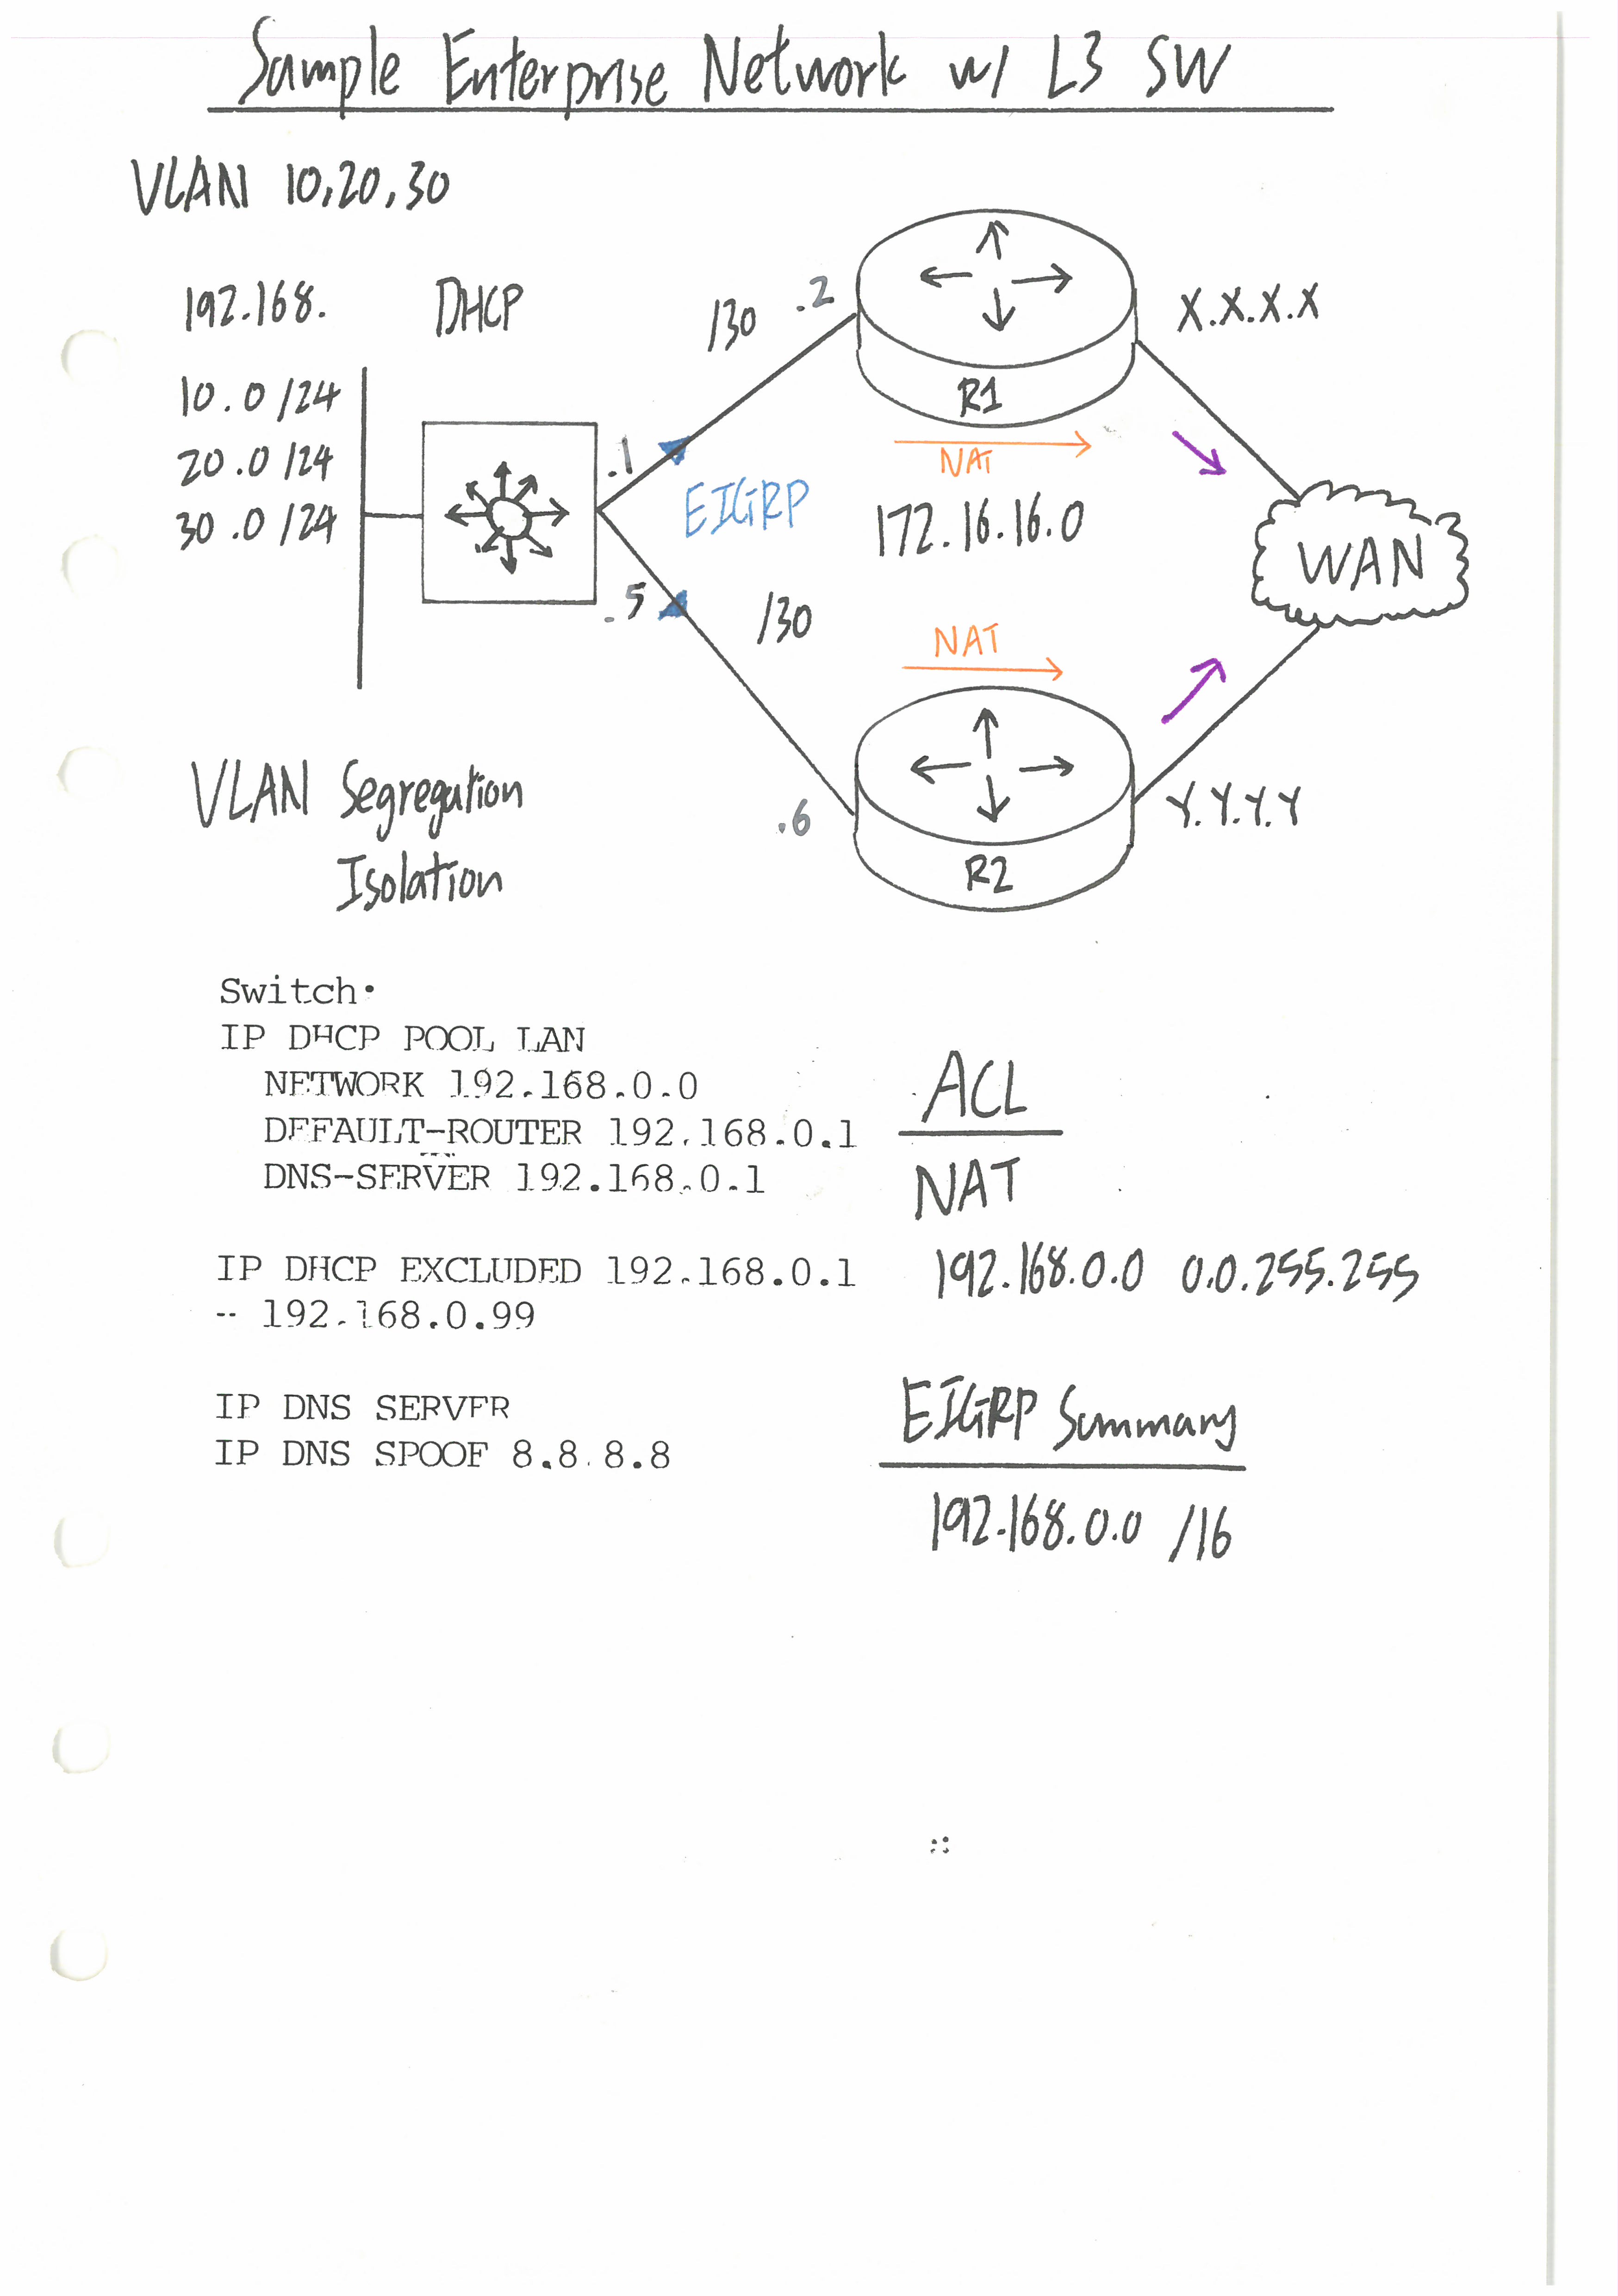 Sample Enterprise Network w/ L3 SW
VLAN 10,20,30
192.168.
10.0/24
20.0/24
30.0/24
DHCP
/30
.2
R1
X.X.X.X
.1
EIGRP
NAT
172.16.16.0
WAN
.5
/30
NAT
.6
R2
Y.Y.Y.Y
VLAN Segregation
Isolation
Switch:
IP DHCP POOL LAN
NETWORK 192.168.0.0
DEFAULT-ROUTER 192.168.0.1
DNS-SERVER 192.168.0.1
IP DHCP EXCLUDED 192.168.0.1
- 192.168.0.99
IP DNS SERVER
IP DNS SPOOF 8.8.8.8
ACL
NAT
192.168.0.0 0.0.255.255
EIGRP Summary
192.168.0.0 /16